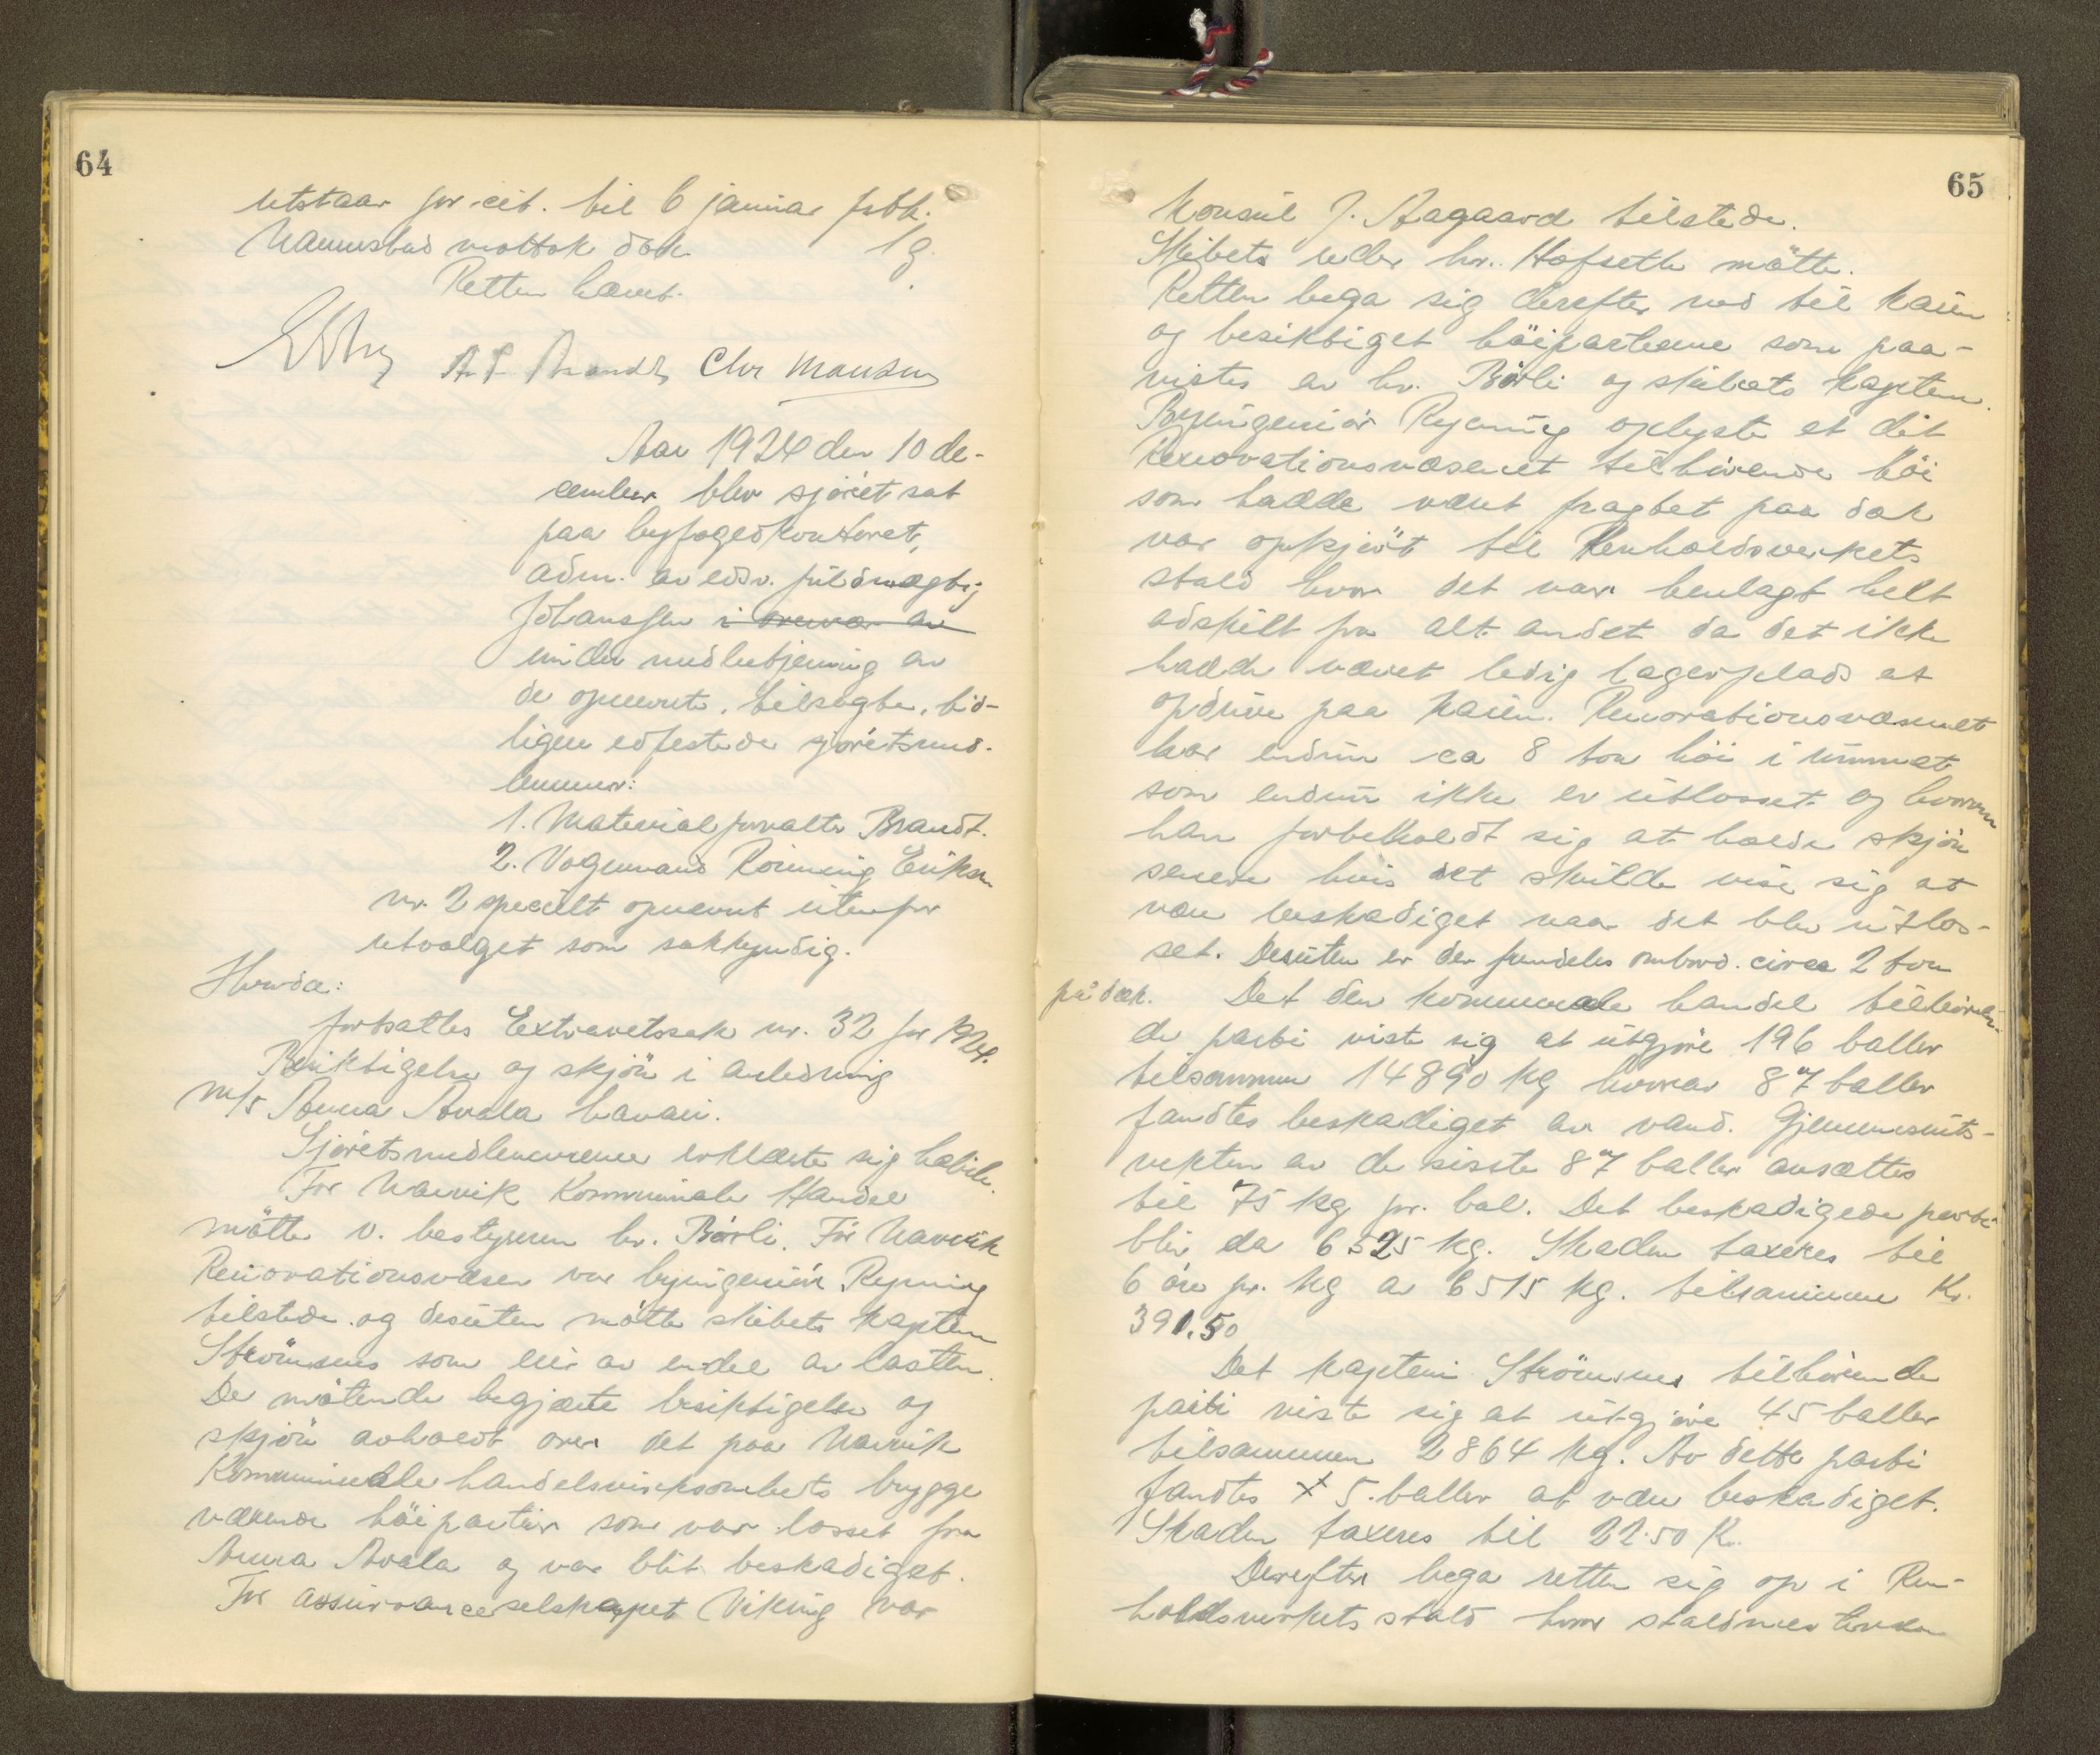 64
utstaar for cit. til 6 januar
mottok dok.
Retten hævet.
Chr Monsen
Aar 1924 den 10 de-
cember blev sjøret sat
paa byfogedkontoret,
adm. av edsv. fuldmægtig
Johanssen i nærvær av
under medbetjening av
de opnevnte, tilsagte, tid-
ligere edfestede sjøretsmed-
lemmer:
1. Materialforvalter Brandt.
2. Vognmand Rönning Eriksen
nr. 2 specielt opnevnt utenfor
utvalget som sakkyndig.
Hvorda:
fortsattes Extraretssak nr. 32 for 1924.
Besiktigelse og skjön i anledning
m/s Anna Avala havari.
Sjøretsmedlemmerne erklærte sig habile.
For Narvik Kommunale Handel
mötte v. bestyreren hr. Börli. For Narvik
Renovationsvæsen var byingeniör Ryening
tilstede og desuten mötte skibets kaptein
Strömsnes som eier av endel av lasten.
De mötende begjærte besiktigelse og
skjön avholdt over det paa Narvik
Kommunale handelsvirksomhets brygge
værende höipartier som var losset fra
Anna Avala og var blit beskadiget.
For assuranceselskapet Viking var
65
Konsul J. Aagaard tilstede.
Skibets reder hr. Hofseth mötte.
Retten bega sig derefter ned til kaien
og besiktiget höipartierne som paa-
vistes av hr. Börli og skibets kaptein.
Byingeniör Ryening oplyste at det
Renovationsvæsenet tilhörende höi
som hadde været fragtet paa dæk
var opkjört til Renholdsverkets
stald hvor det var henlagt helt
adskilt fra alt andet da det ikke
hadde været ledig lagerplads at
opdrive paa kaien. Renovationsvæsenet
har endnu ca 8 ton höi i rummet
som endnu ikke er utlosset og hvorom
han forbeholdt sig at holde skjön
senere hvis det skulde vise sig at
være beskadiget naar det blev utlos-
set. Desuten er der fremdeles ombord circa 2 ton
på dæk. Det den kommunale handel tilhören-
de parti viste sig at utgjöre 196 baller
tilsammen 14890 kg hvorav 87 baller
fandtes beskadiget av vand. Gjennemsnits-
vekten av de sisste 87 baller ansættes
til 75 kg pr. bal. Det beskadigede parti
blir da 6525 kg. Skaden taxeres til
6 öre pr. kg av 6515 kg. tilsammen Kr.
391.50
Det kaptein Strömsnes tilhörende
parti viste sig at utgjöre 45 baller
tilsammen 2864 kg. Av dette parti
fandtes 5 baller at være beskadiget.
Skaden taxeres til 22.50 Kr.
Derefter bega retten sig op i Ren-
holdsverkets stald hvor